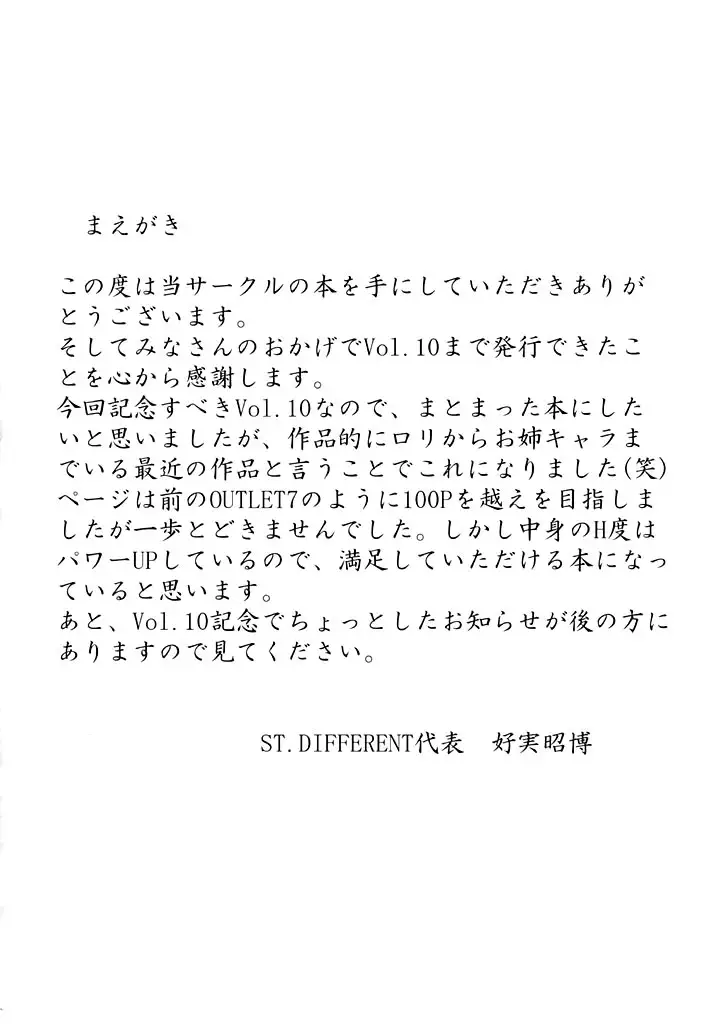 まえがき
この度は当サークルの本を手にしていただきありが
とうございます。
そしてみなさんのおかげでVol.10まで発行できたこ
とを心から感謝します。
今回記念すべきVol.10なので、まとまった本にした
いと思いましたが、作品的にロリからお姉キャラま
でいる最近の作品と言うことでこれになりました(笑)
ページは前のOUTLET7のように100Pを越えを目指しま
したが一歩とどきませんでした。しかし中身のH度は
パワーUPしているので、満足していただける本になっ
ていると思います。
あと、Vol.10記念でちょっとしたお知らせが後の方に
ありますので見てください。
ST.DIFFERENT代表　好実昭博